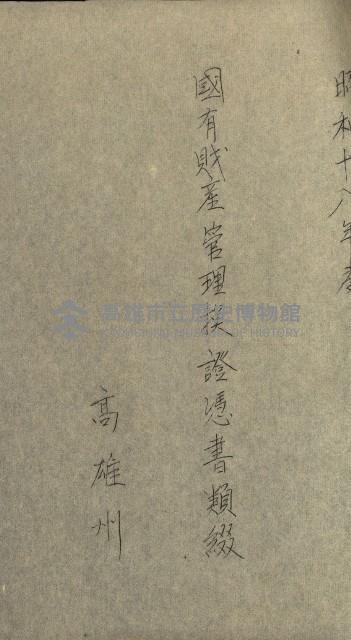 昭和十八年度
國有財產管理換證憑書類綴
高雄州
高雄市立歷史博物館
KAOHSIUNG MUSEUM OF HISTORY